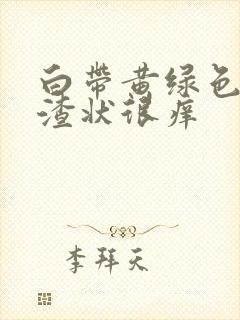 白带黄绿色
渣状很痒
李拜天